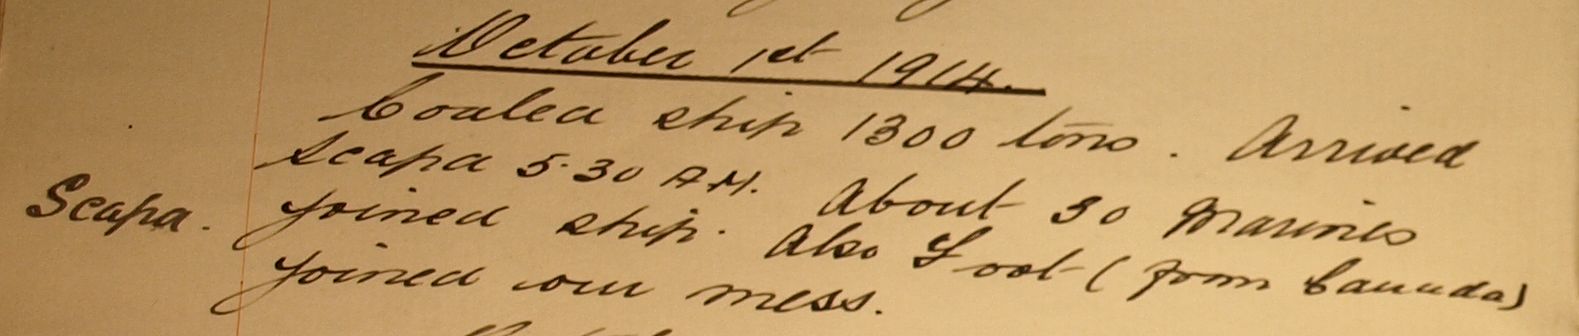 October 1st 1914.
Coaled ship 1300 tons. Arrived
Scapa 5.30 A.M. About 30 Marines
Scapa. joined ship. Also (from Canada)
joined our mess.